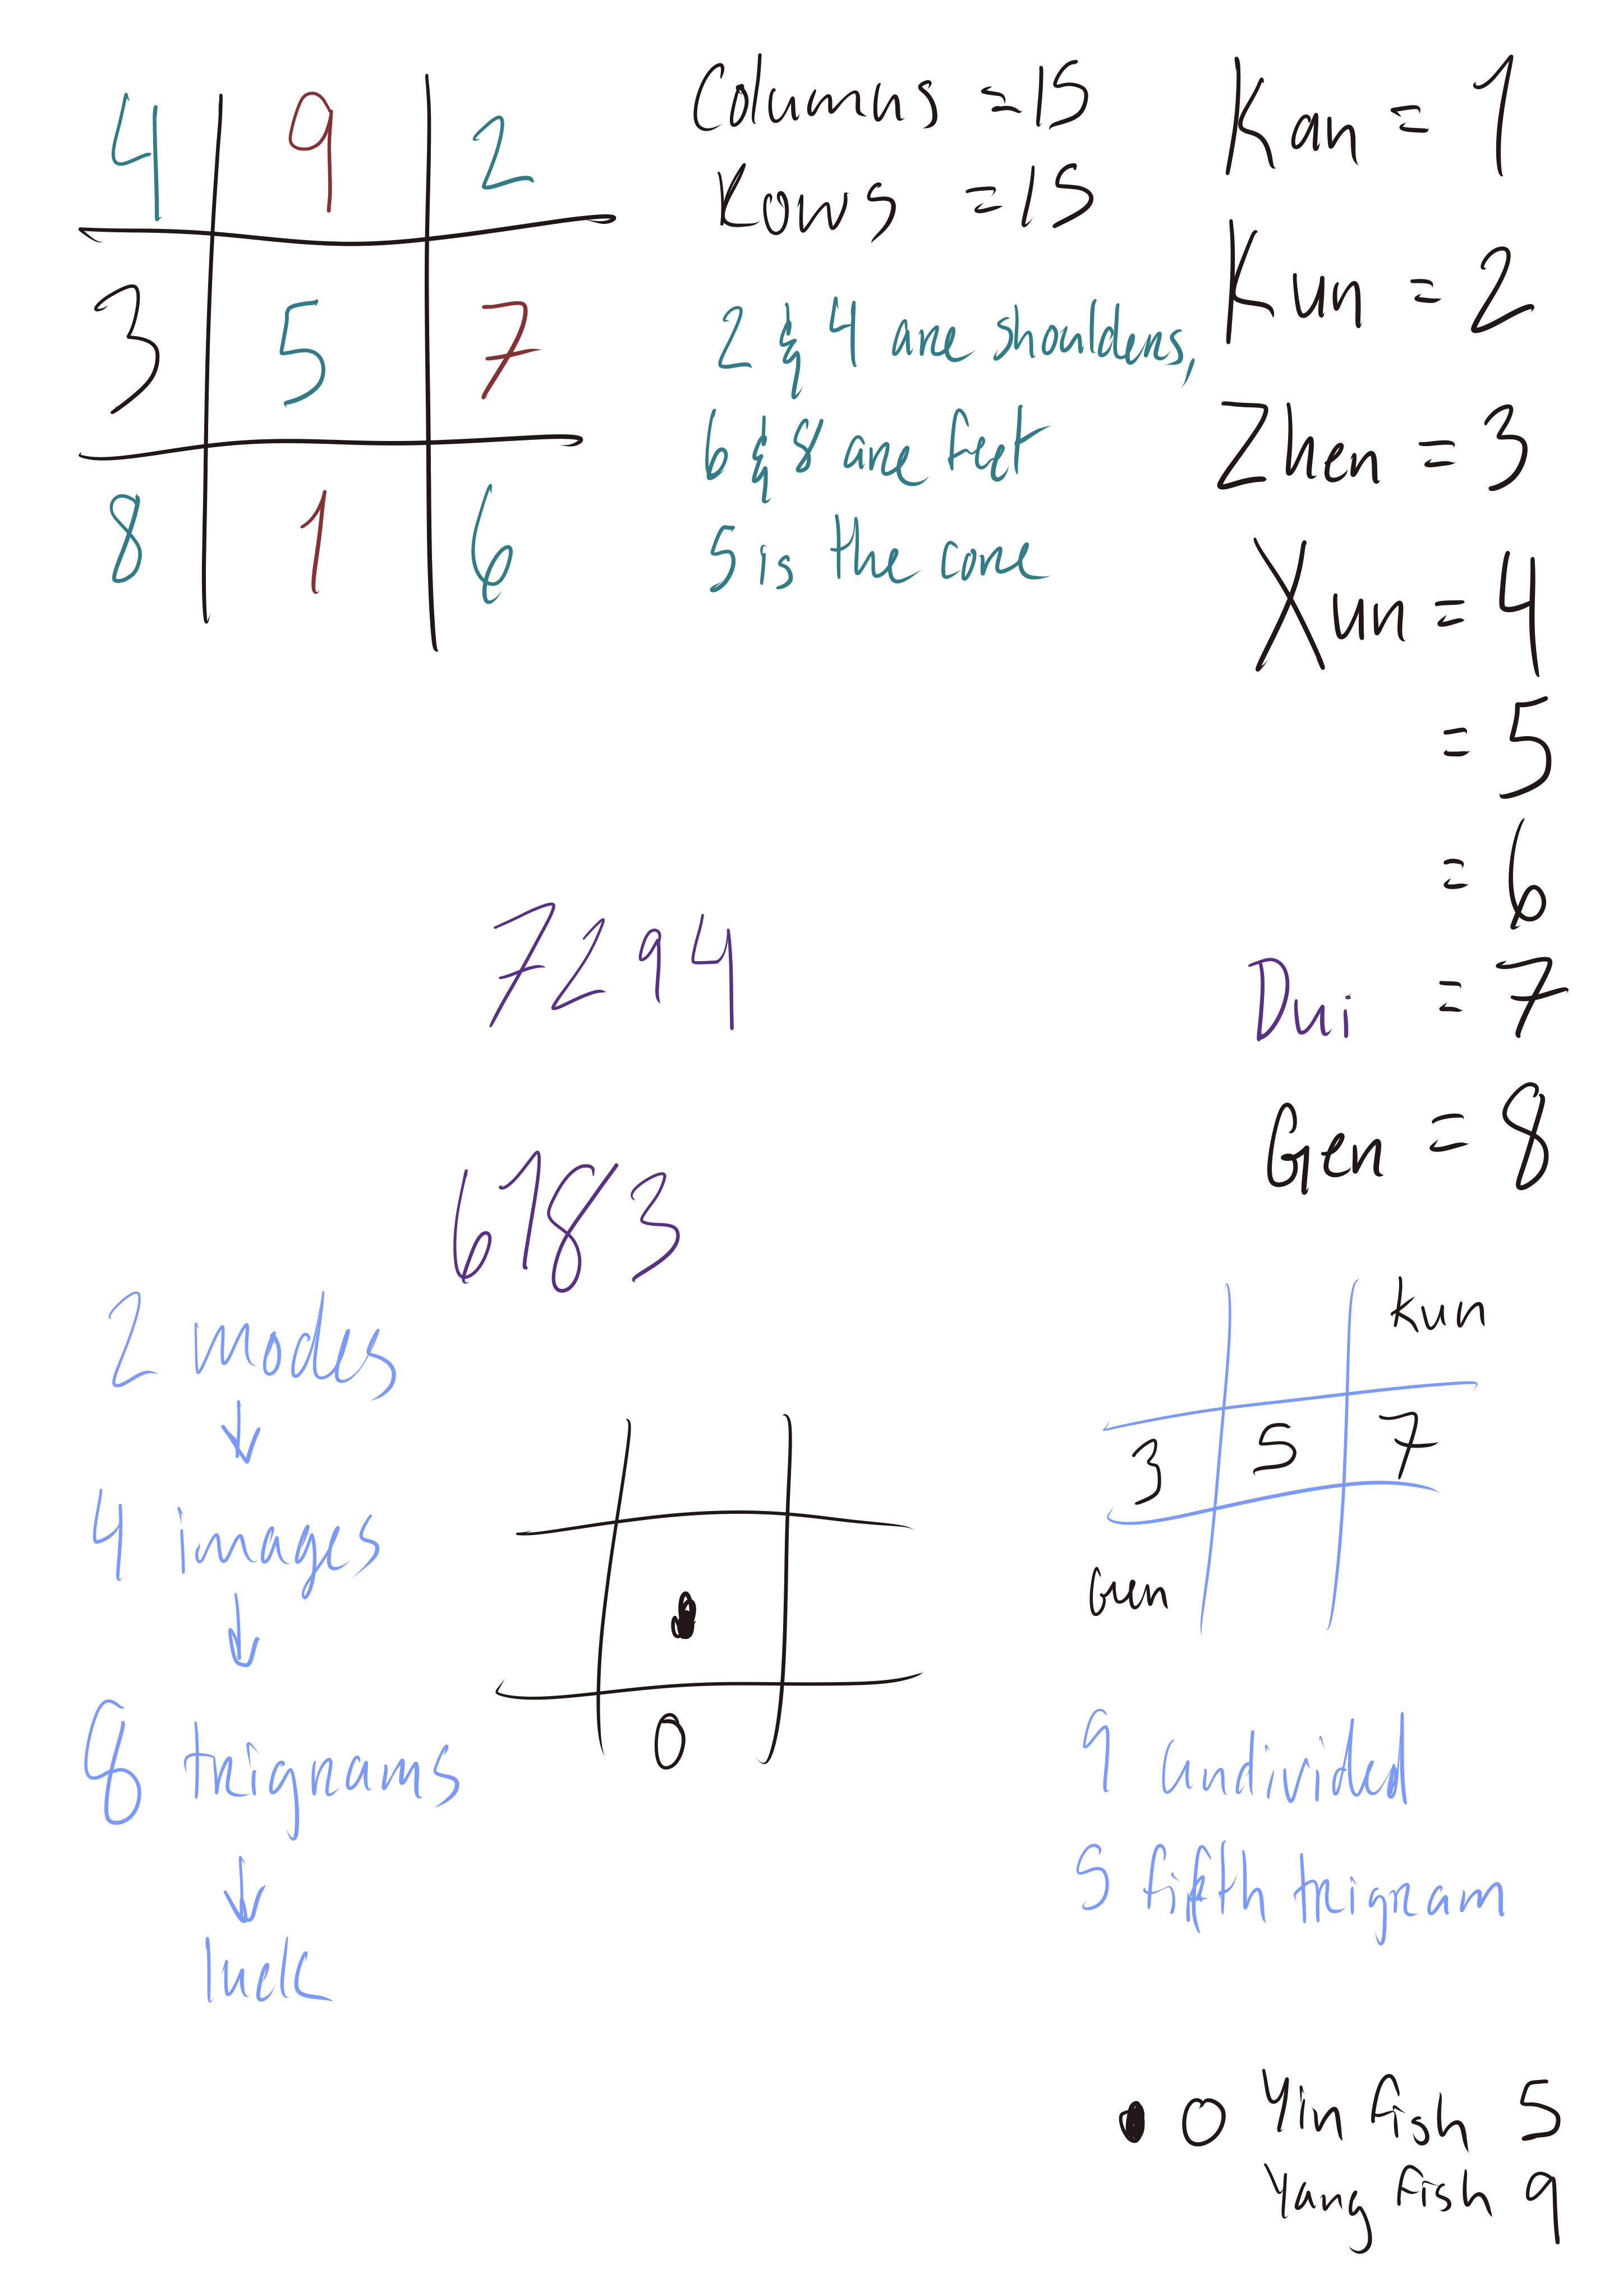 4 9 2
3 5 7
8 1 6
Columns = 15
Rows = 15
2 & 4 are shoulders,
6 & 8 are feet
5 is the core
Kan = 1
Kun = 2
Zhen = 3
Xun = 4
= 5
= 6
Dui = 7
Gen = 8
7294
6183
2 modes
↓
4 images
↓
8 trigrams
↓
luck
0
Kun
3 5 7
Gen
9 undivided
5 fifth trigram
Yin fish 5
Yang fish 9